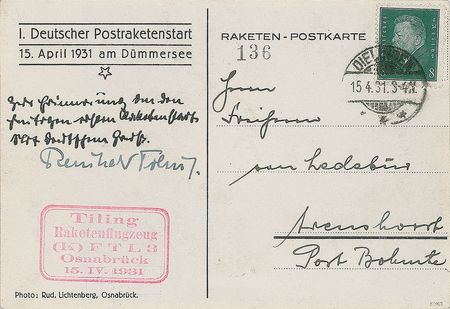 I. Deutscher Postraketenstart
15. April 1931 am Dümmersee
Zur Erinnerung an den
heutigen ersten Raketenstart
Tiling
Raketenflugzeug
(K) F T L 3
Osnabrück
15. IV. 1931
Photo: Rud. Lichtenberg, Osnabrück.
RAKETEN - POSTKARTE
136
8
15.4.31.3-4N.
Herrn
Freiherrn
von Ledebur
Arenshorst
Post Bohmte